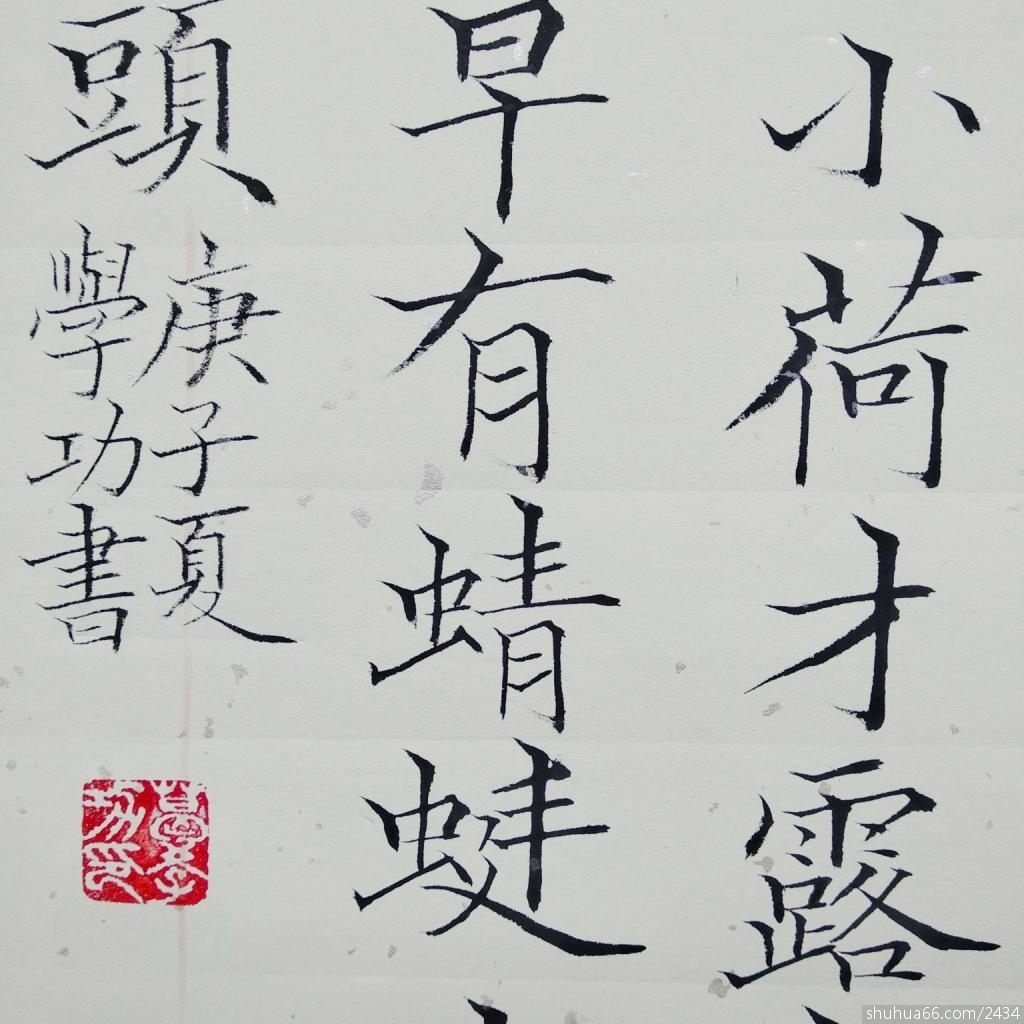 小荷才露
早有蜻蜓
頭
庚子夏
學功書
shuhua66.com/2434